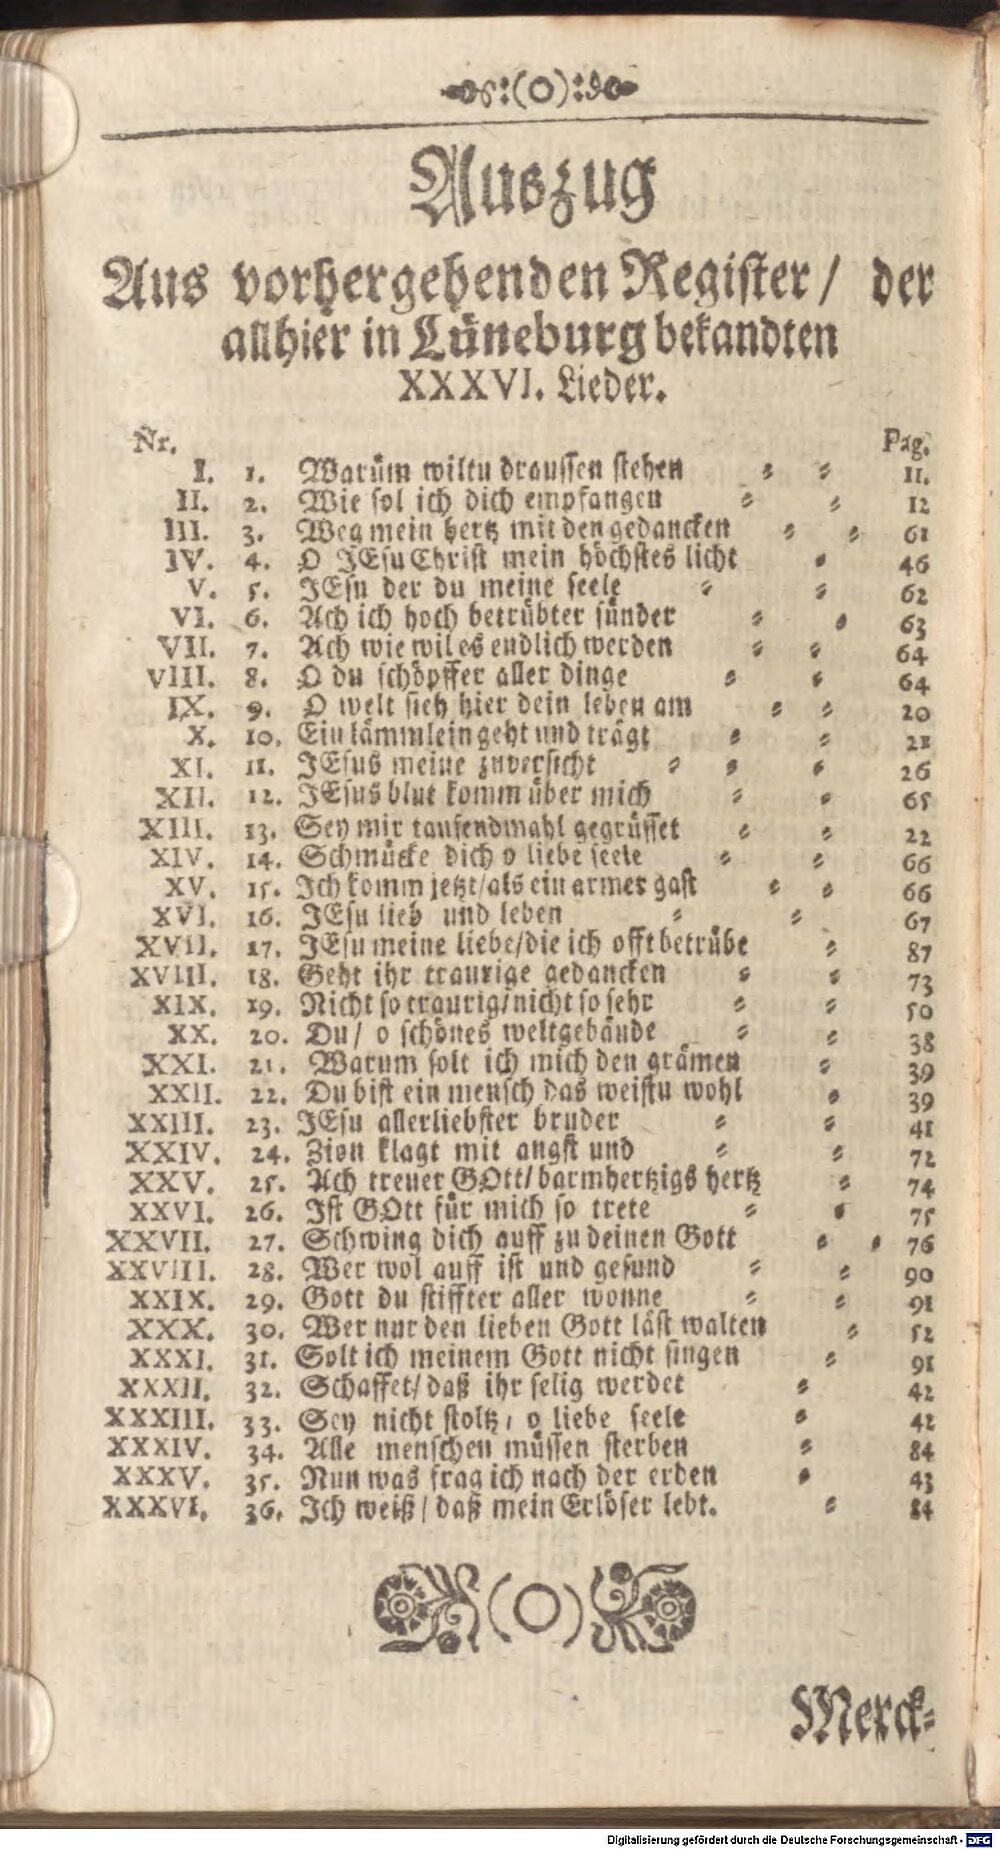 :(O):
Auszug
Aus vorhergehenden Register/ der
allhier in Lüneburg bekandten
XXXVI. Lieder.
Nr. Pag.
I. 1. Warüm wiltu draussen stehen 11.
II. 2. Wie sol ich dich empfangen 12
III. 3. Weg mein hertz mit den gedancken 61
IV. 4. O JEsu Christ mein höchstes licht 46
V. 5. JEsu der du meine seele 62
VI. 6. Ach ich hoch betrübter sünder 63
VII. 7. Ach wie wil es endlich werden 64
VIII. 8. O du schöpffer aller dinge 64
IX. 9. O welt sieh hier dein leben am 20
X. 10. Ein lämmlein geht und trägt 21
XI. 11. JEsus meine zuversicht 26
XII. 12. JEsus blut komm über mich 65
XIII. 13. Sey mir tausendmahl gegrüsset 22
XIV. 14. Schmücke dich o liebe seele 66
XV. 15. Ich komm jetzt/als ein armer gast 66
XVI. 16. JEsu lieb und leben 67
XVII. 17. JEsu meine liebe/die ich offt betrübe 87
XVIII. 18. Geht ihr traurige gedancken 73
XIX. 19. Nicht so traurig/nicht so sehr 50
XX. 20. Du/ o schönes weltgebäude 38
XXI. 21. Warum solt ich mich den grämen 39
XXII. 22. Du bist ein mensch das weistu wohl 39
XXIII. 23. JEsu allerliebster bruder 41
XXIV. 24. Zion klagt mit angst und 72
XXV. 25. Ach treuer GOtt/barmhertzigs hertz 74
XXVI. 26. Ist GOtt für mich so trete 75
XXVII. 27. Schwing dich auff zu deinen Gott 76
XXVIII. 28. Wer wol auff ist und gesund 90
XXIX. 29. Gott du stiffter aller wonne 91
XXX. 30. Wer nur den lieben Gott läst walten 52
XXXI. 31. Solt ich meinem Gott nicht singen 91
XXXII. 32. Schaffet/daß ihr selig werdet 42
XXXIII. 33. Sey nicht stoltz, o liebe seele 42
XXXIV. 34. Alle menschen müssen sterben 84
XXXV. 35. Nun was frag ich nach der erden 43
XXXVI. 36. Ich weiß/daß mein Erlöser lebt. 84
(O)
Merck-
Digitalisierung gefördert durch die Deutsche Forschungsgemeinschaft - DFG